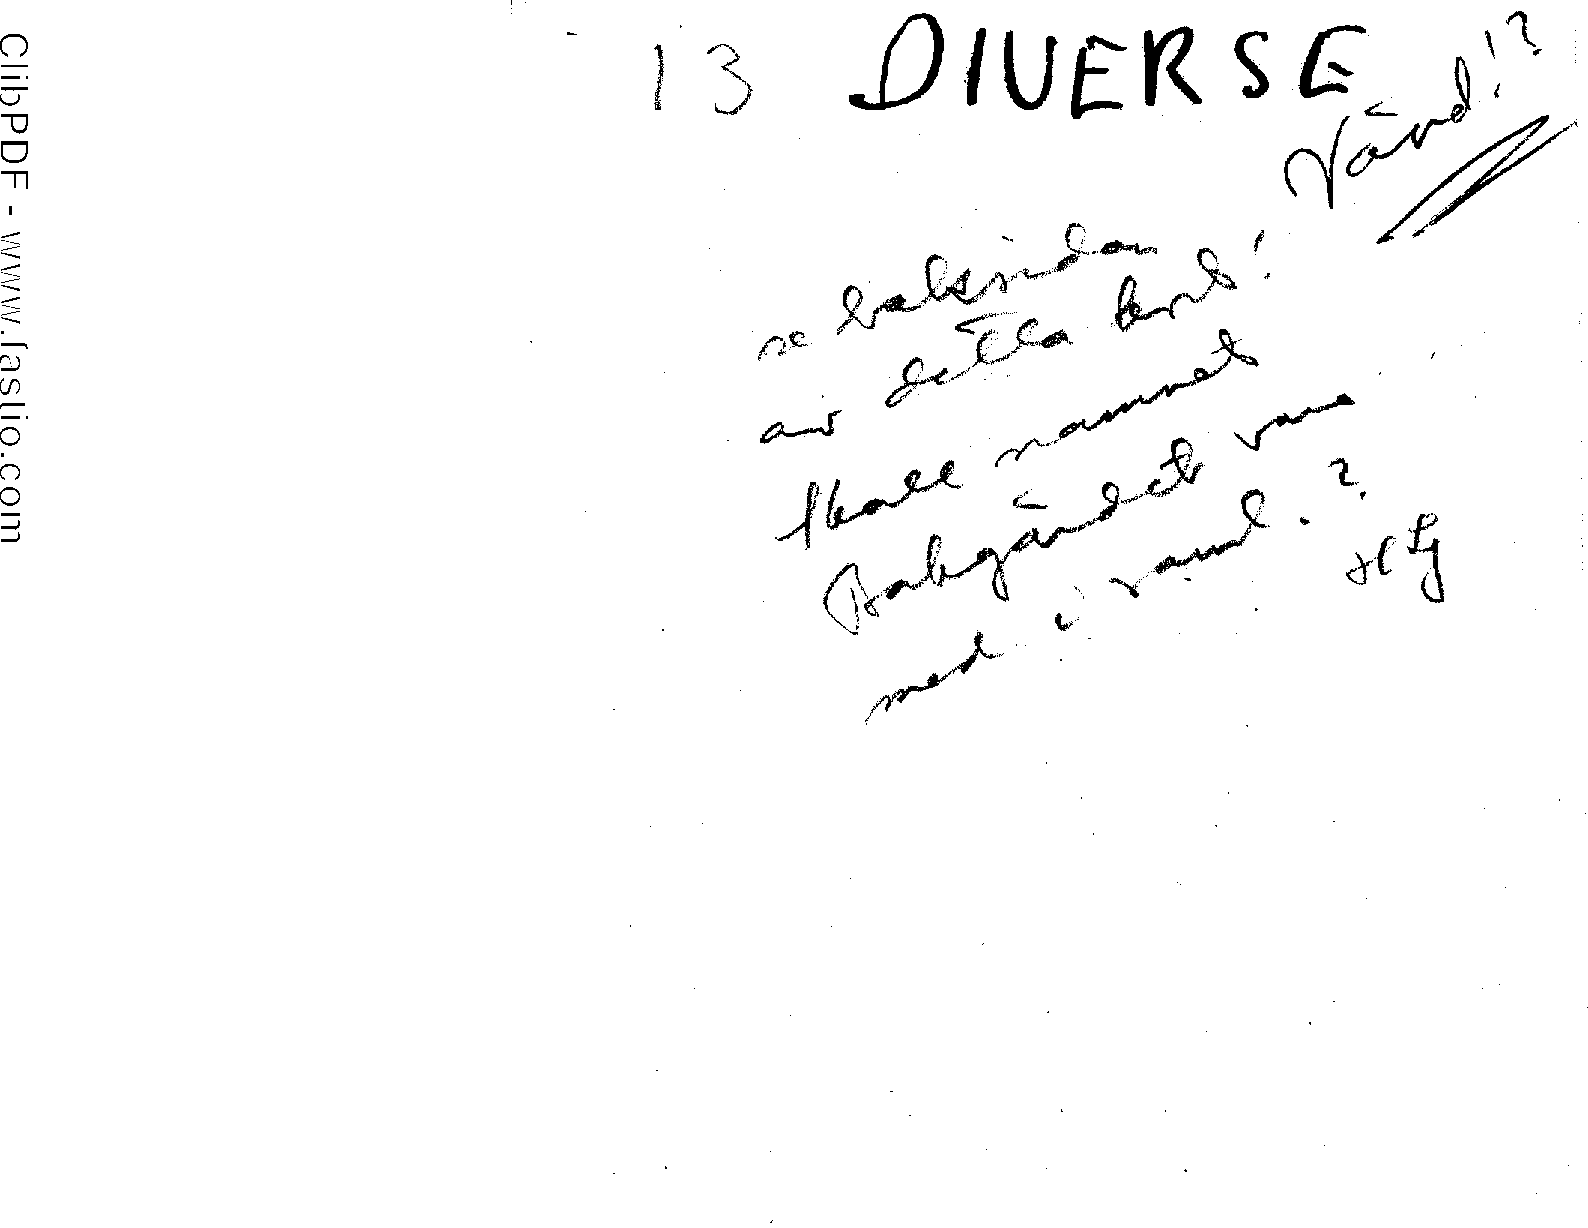 13 DIVERSE
Vänd!?
se baksidan
av detta kort!
skall namnet
Bakgärdet vara
med i saml.?
HLg
ClibPDF - www.fastio.com